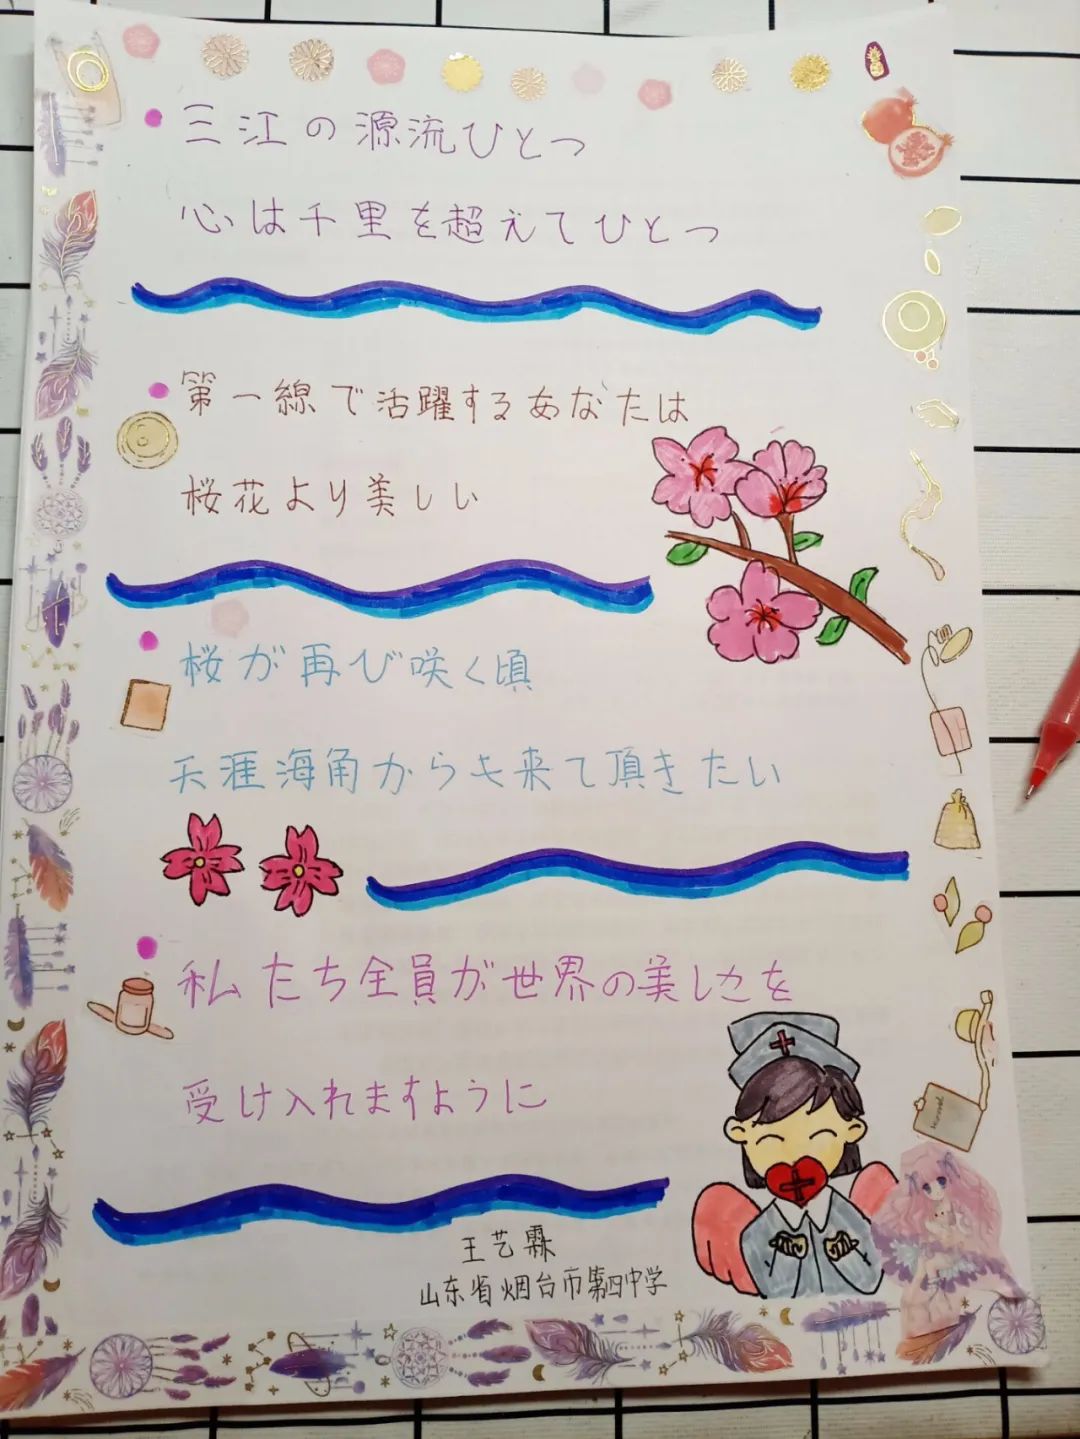 三江の源流ひとつ
心は千里を超えてひとつ
第一線で活躍するあなたは
桜花より美しい
桜が再び咲く頃
天涯海角からも来て頂きたい
私たち全員が世界の美しさを
受け入れますように
王艺霖
山东省烟台市第四中学